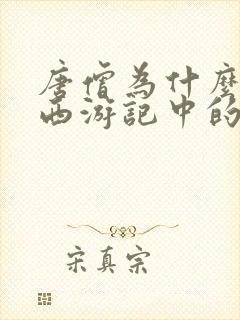 唐僧為什麼
西游記中的
宋真宗